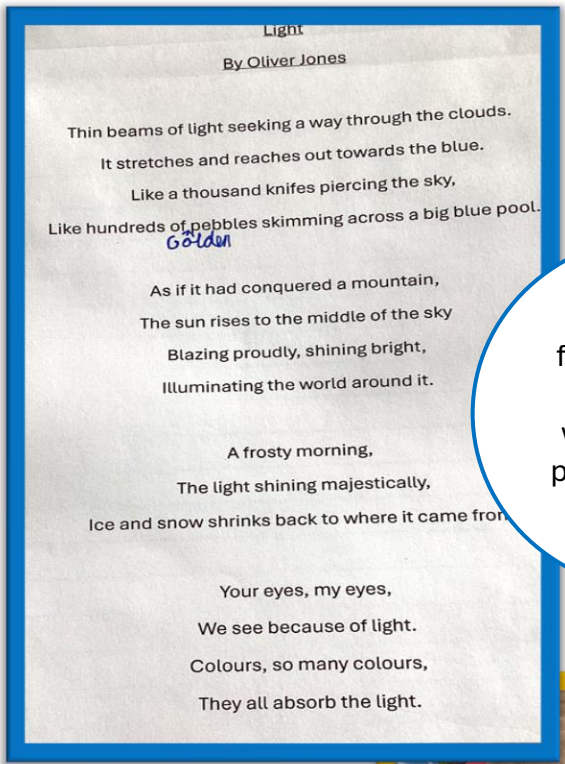 Light
By Oliver Jones
Thin beams of light seeking a way through the clouds.
It stretches and reaches out towards the blue.
Like a thousand knifes piercing the sky,
Like hundreds of pebbles skimming across a big blue pool.
^
Golden
As if it had conquered a mountain,
The sun rises to the middle of the sky
Blazing proudly, shining bright,
Illuminating the world around it.
A frosty morning,
The light shining majestically,
Ice and snow shrinks back to where it came
Your eyes, my eyes,
We see because of light.
Colours, so many colours,
They all absorb the light.